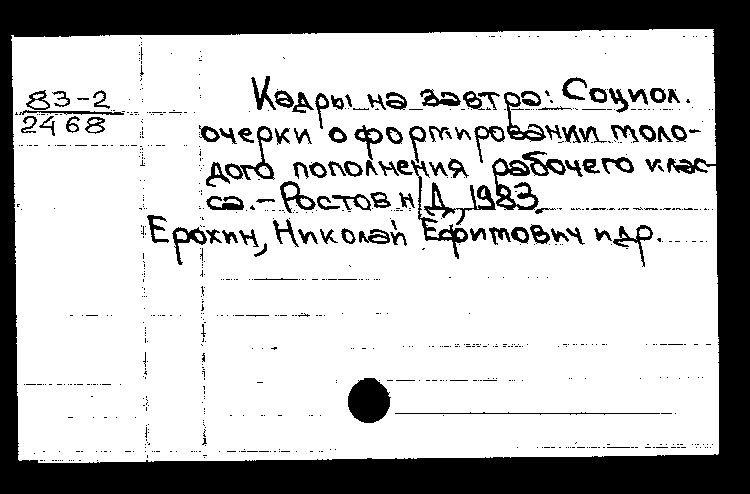 83-2
2468
Кадры на завтра: Социол.
очерки о формировании моло-
дого пополнения рабочего клас-
са. - Ростов н/Д, 1983.
Ерохин, Николай Ефимович и др.